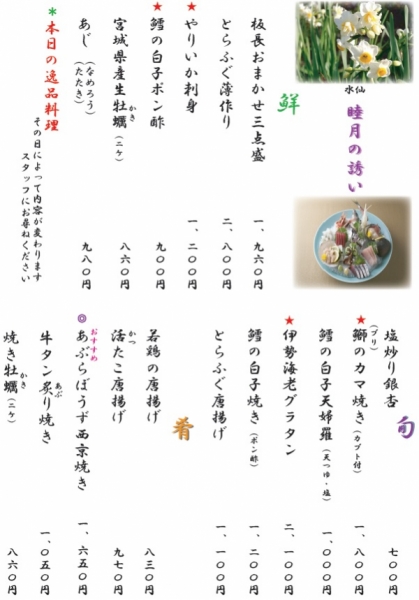 水仙
睦月の誘い
鮮
板長おまかせ三点盛 一、九六〇円
とらふぐ薄作り 二、八〇〇円
★やりいか刺身 一、二〇〇円
★鱈の白子ポン酢 九〇〇円
宮城県産生牡蠣(かき)(二ヶ) 八六〇円
あじ(なめろう)(たたき) 九八〇円
*本日の逸品料理
その日によって内容が変わります
スタッフにお尋ねください
旬
塩炒り銀杏 七〇〇円
★鰤(ブリ)のカマ焼き(カブト付) 一、八〇〇円
鱈の白子天婦羅(天つゆ・塩) 一、〇〇〇円
★伊勢海老グラタン 二、一〇〇円
鱈の白子焼き(ポン酢) 一、二〇〇円
とらふぐ唐揚げ 一、一〇〇円
肴
若鶏の唐揚げ 八三〇円
活(かつ)たこ唐揚げ 九七〇円
◎おすすめ あぶらぼうず西京焼き 一、六五〇円
牛タン炙(あぶ)り焼き 一、〇五〇円
焼き牡蠣(かき)(二ヶ) 八六〇円